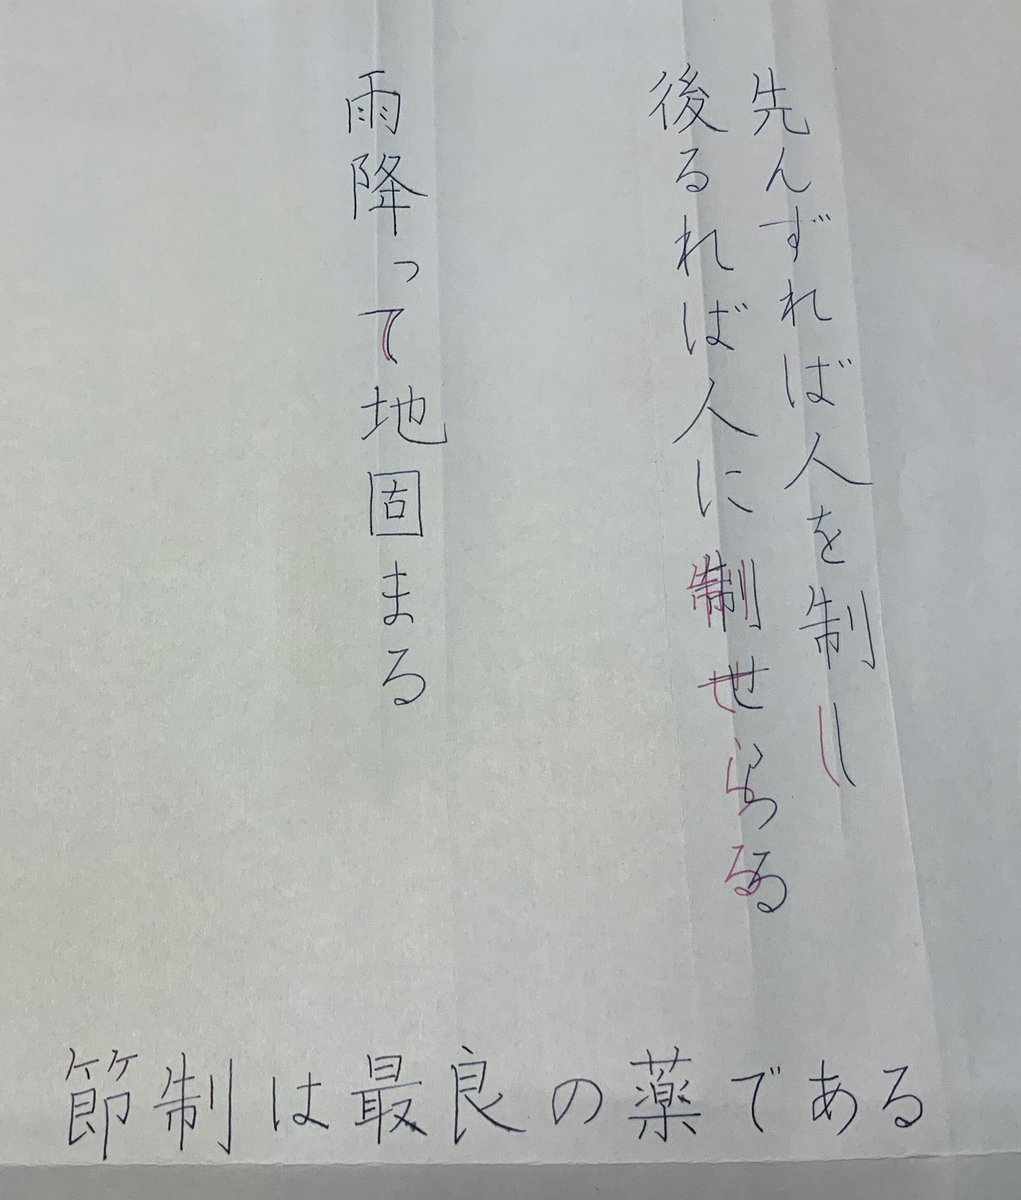 先んずれば人を制し
後るれば人に制せらる
雨降って地固まる
節制は最良の薬である